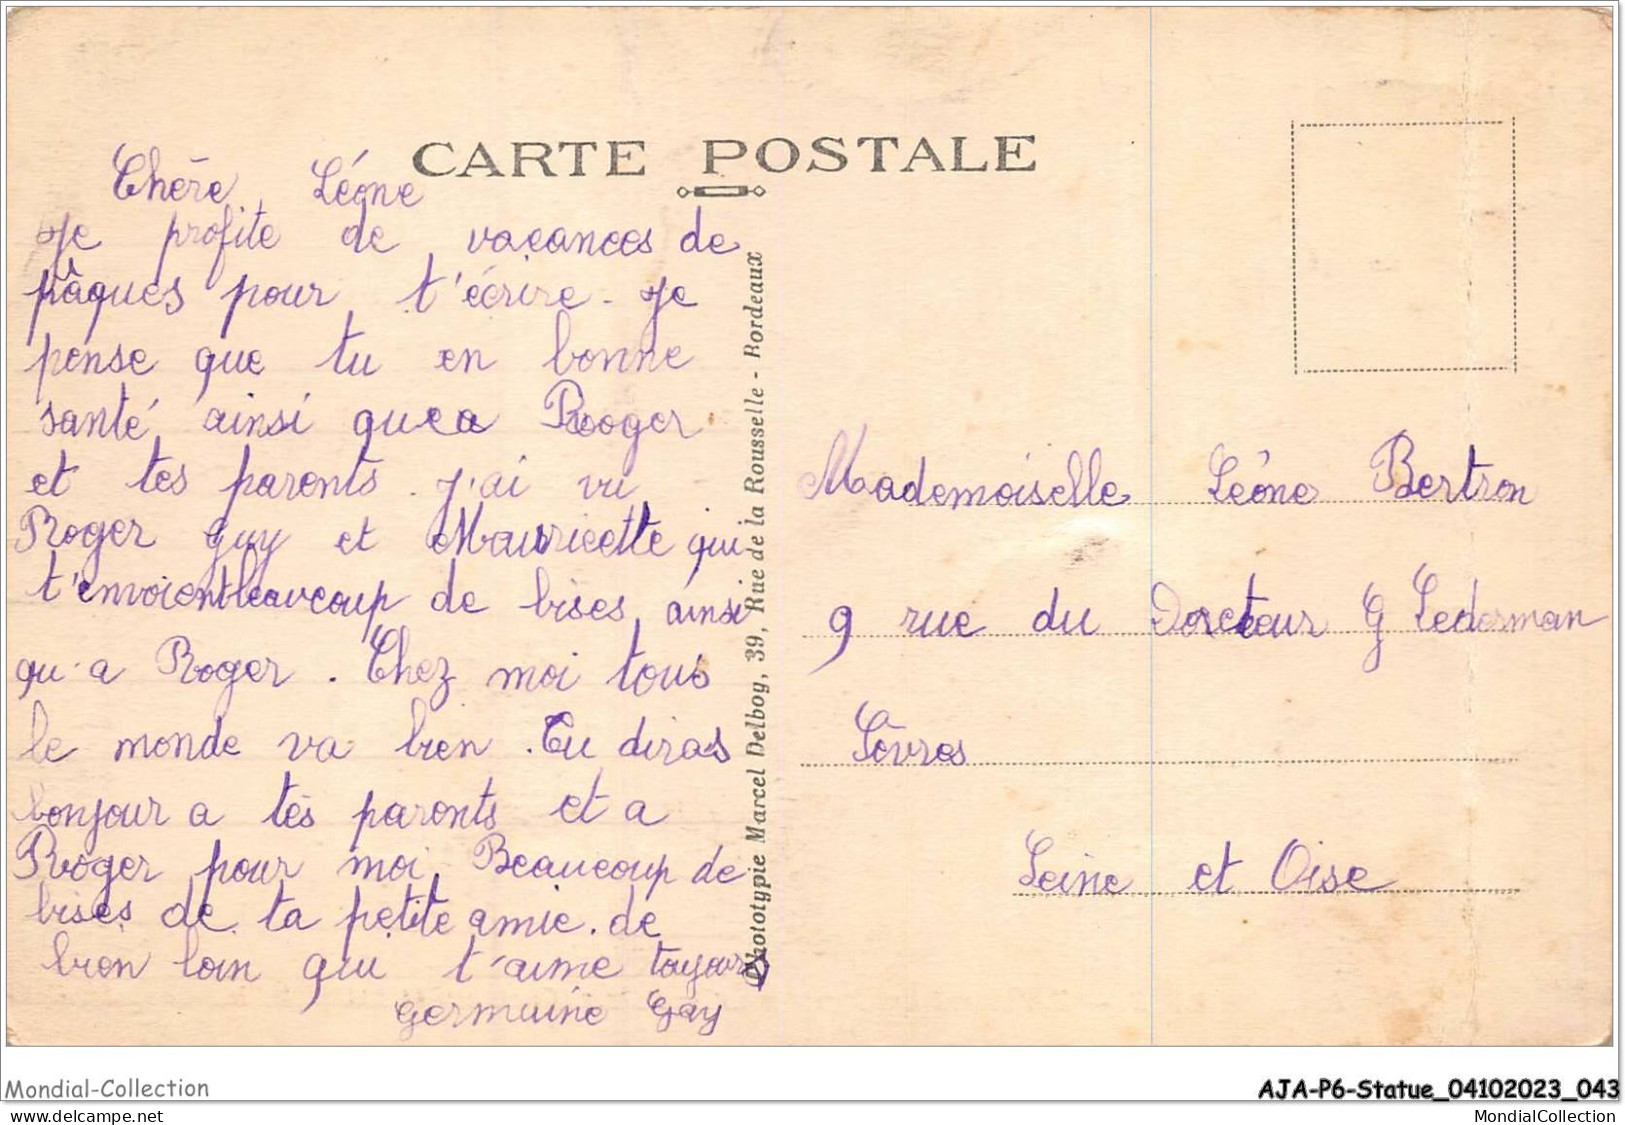 CARTE POSTALE
Chère Léone
Je profite de vacances de
pâques pour t'écrire. Je
pense que tu en bonne
santé ainsi quea Roger
et tes parents. J'ai vu
Roger guy et Mauricette qui
t'envoient beaucoup de bises, ainsi
qu'a Roger. Chez moi tous
le monde va bien. Tu diras
bonjour a tes parents et a
Roger pour moi. Beaucoup de
bises de ta petite amie. de
bien loin qui t'aime toujours
Germaine Gay
Phototypie Marcel Delboy, 39, Rue de la Rousselle - Bordeaux
Mademoiselle Léone Bertron
9 rue du Docteur G Lederman
Sèvres
Seine et Oise
Mondial-Collection
AJA-P6-Statue_04102023_043
www.delcampe.net
MondialCollection